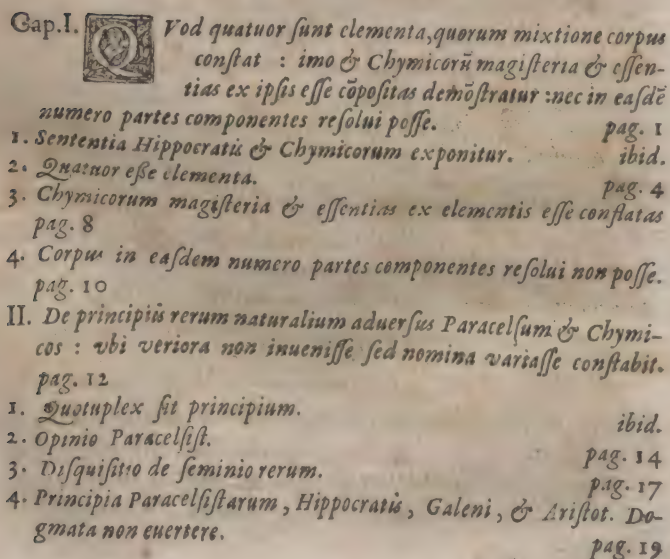 Cap. I. QVod quatuor ſunt elementa, quorum mixtione corpus
conſtat : imo & Chymicorũ magiſteria & eſſen-
tias ex ipſis eſſe cõpoſitas demõſtratur : nec in eaſdẽ
numero partes componentes reſolui poſſe. pag. 1
1. Sententia Hippocratis & Chymicorum exponitur. ibid.
2. Quatuor eſſe elementa. pag. 4
3. Chymicorum magiſteria & eſſentias ex elementis eſſe conflatas
pag. 8
4. Corpus in eaſdem numero partes componentes reſolui non poſſe.
pag. 10
II. De principiis rerum naturalium aduerſus Paracelſum & Chymi-
cos : vbi veriora non inueniſſe ſed nomina variaſſe conſtabit.
pag. 12
1. Quotuplex ſit principium. ibid.
2. Opinio Paracelſiſt. pag. 14
3. Diſquiſitio de ſeminio rerum. pag. 17
4. Principia Paracelſiſtarum, Hippocratis, Galeni, & Ariſtot. Do-
gmata non euertere. pag. 19